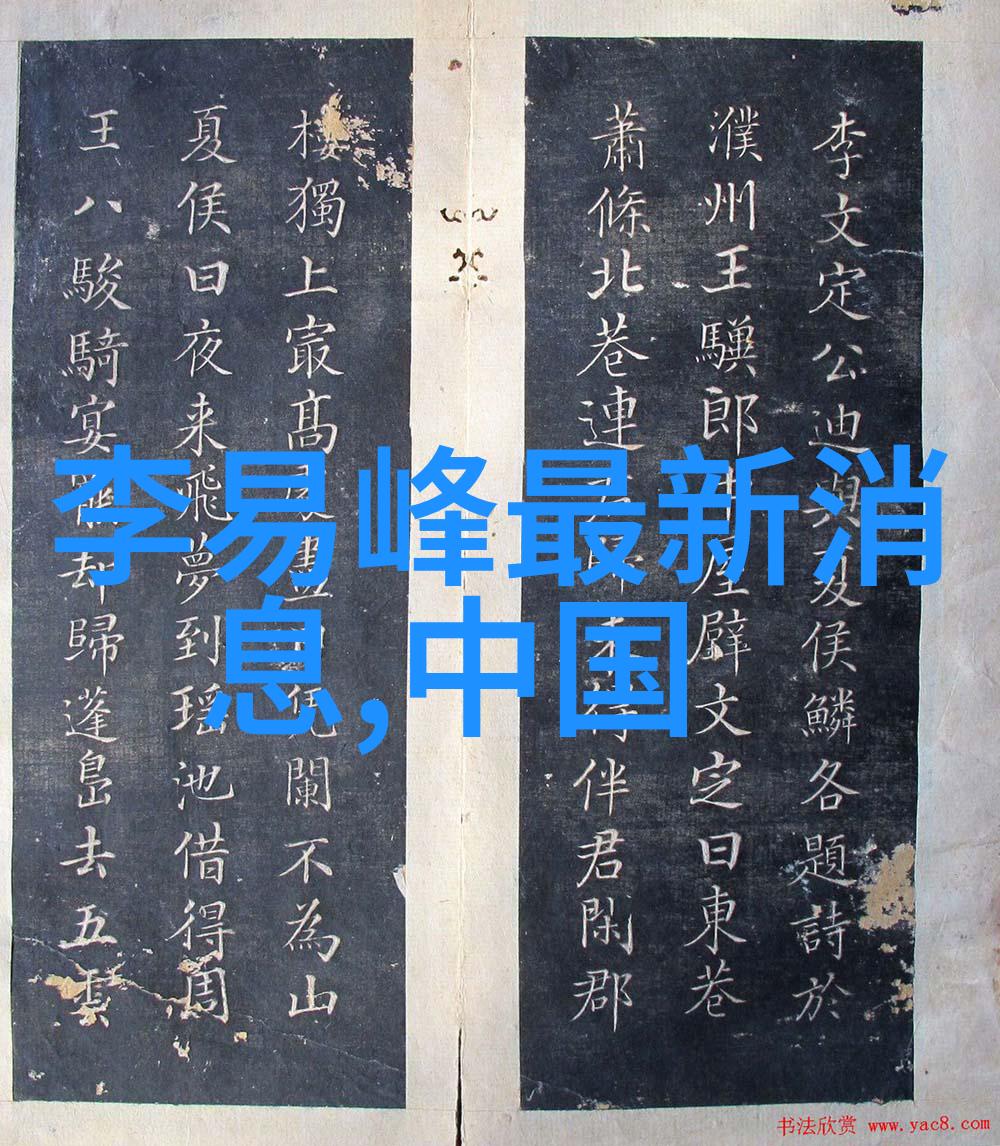 李文定公迪與夏侯鱗各題詩於
濮州王郎屋壁文定曰東巷
蕭條北巷連得伴君閑郡
樓獨上寂髙層盡日凭闌不為山
夏侯曰夜来飛夢到瑶池借得周
王八駿騎宴罷却歸蓬島去五雲
李易峰最新消
息,中国
书法欣赏 www.yac8.com